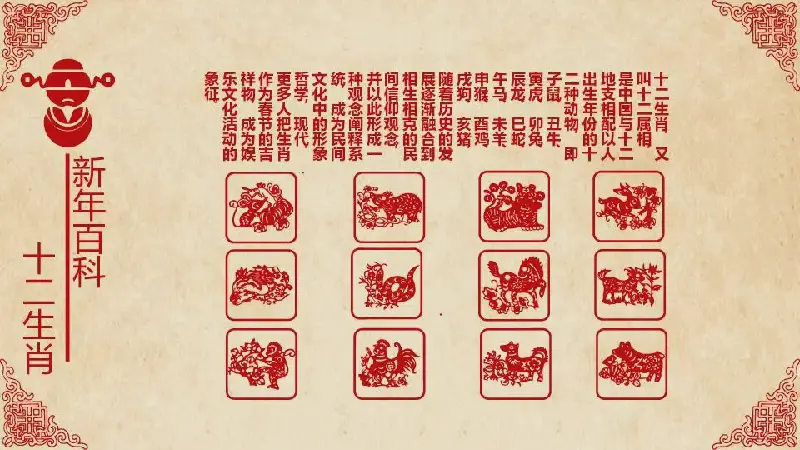 十二生肖 又
叫十二属相
是中国与十二
地支相配以人
出生年份的十
二种动物 即
子鼠 丑牛
寅虎 卯兔
辰龙 巳蛇
午马 未羊
申猴 酉鸡
戌狗 亥猪
随着历史的发
展逐渐融合到
相生相克的民
间信仰观念,
并以此形成一
种观念阐释系
统, 成为民间
文化中的形象
哲学, 现代,
更多人把生肖
作为春节的吉
祥物 成为娱
乐文化活动的
象征.
新年百科
十二生肖